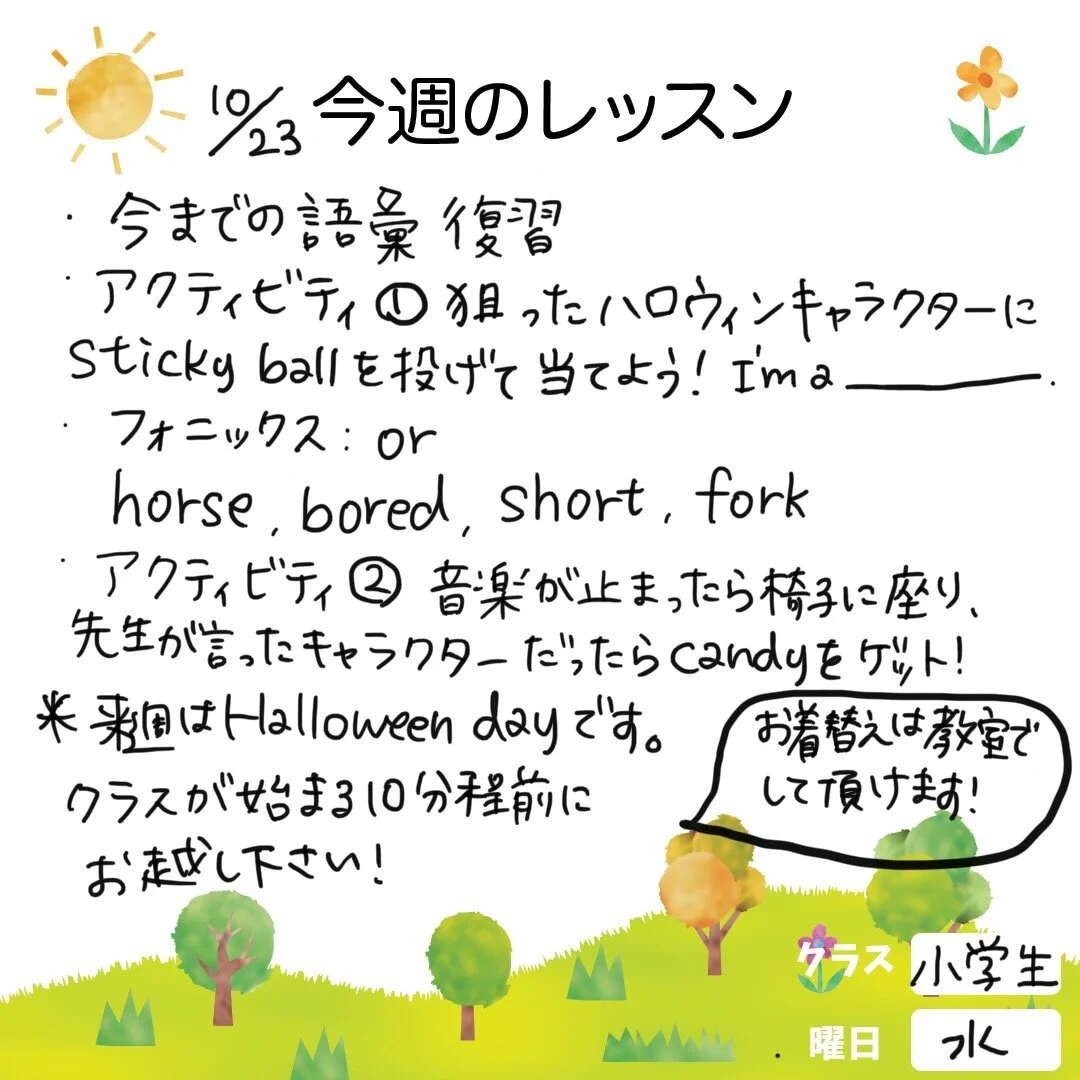 10/23 今週のレッスン
・今までの語彙 復習
・アクティビティ① 狙ったハロウィンキャラクターに
sticky ballを投げて当てよう! I'm a ________.
・フォニックス: or
horse, bored, short, fork
・アクティビティ② 音楽が止まったら椅子に座り、
先生が言ったキャラクターだったらcandyをゲット!
※ 来週はHalloween dayです。
クラスが始まる10分程前に
お越し下さい!
お着替えは教室で
して頂けます!
クラス 小学生
曜日 水